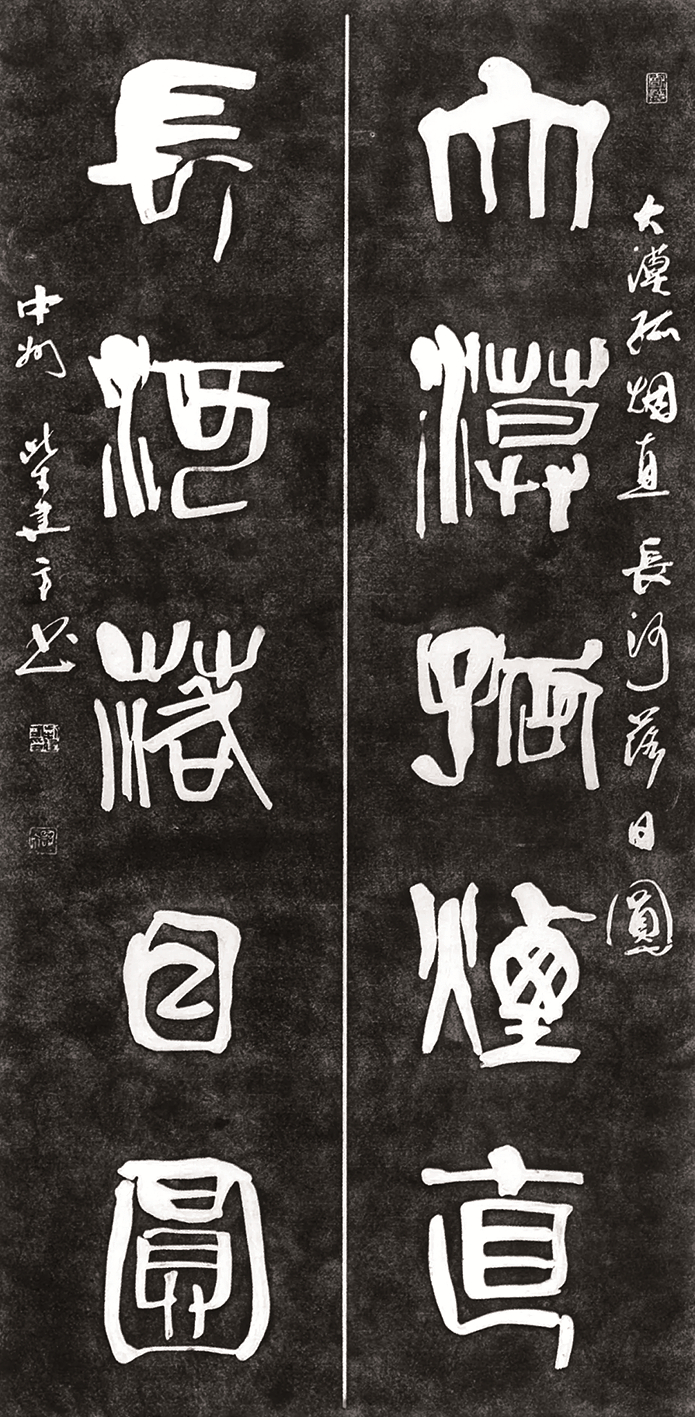 大漠孤烟直長河落日圓
大漠孤煙直
長河落日圓
中州 柴建方书